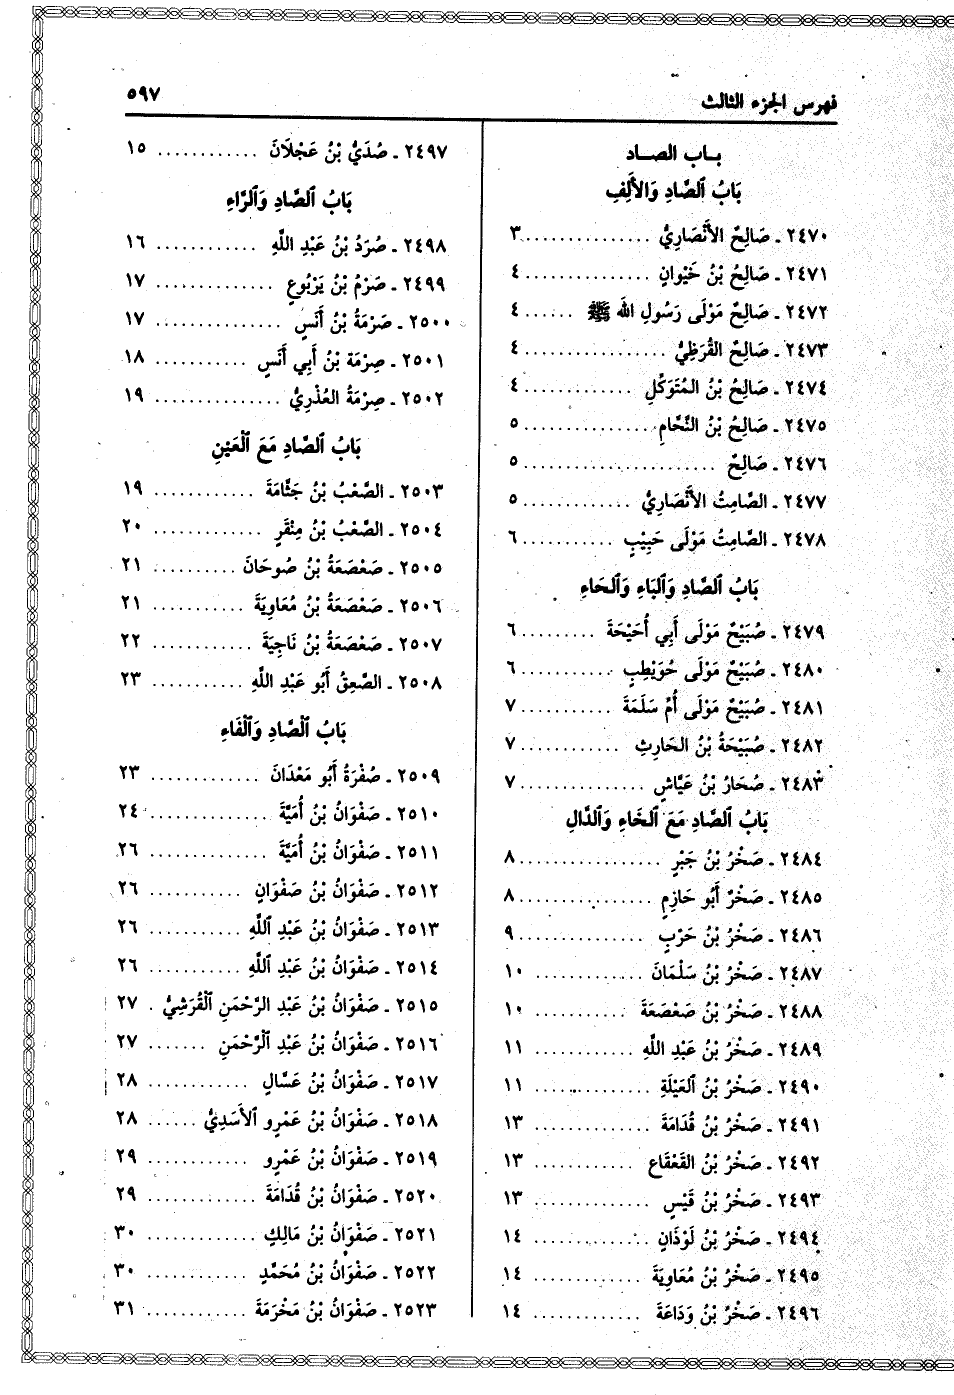 فهرس الجزء الثالث ٥٩٧
بـاب الصـاد
بَابُ ٱلصَّادِ وَالأَلِفِ
٢٤٧٠ ـ صَالِحٌ الأَنْصَارِيُّ ............... ٣
٢٤٧١ ـ صَالِحُ بْنُ خَيْوانٍ ............... ٤
٢٤٧٢ ـ صَالِحٌ مَوْلَى رَسُولِ الله ﷺ ...... ٤
٢٤٧٣ ـ صَالِحٌ القُرَظِيُّ ................. ٤
٢٤٧٤ ـ صَالِحُ بْنُ المُتَوَكِّلِ ............. ٤
٢٤٧٥ ـ صَالِحُ بْنُ النَّحَّامِ ............... ٥
٢٤٧٦ ـ صَالِحٌ ....................... ٥
٢٤٧٧ ـ الصَّامِتُ الأَنْصَارِيُّ ............. ٥
٢٤٧٨ ـ الصَّامِتُ مَوْلَى حَبِيْبٍ ........... ٦
بَابُ ٱلصَّادِ وَٱلبَاءِ وَٱلحَاءِ
٢٤٧٩ ـ صُبَيْحٌ مَوْلَى أَبِي أُحَيْحَةَ ......... ٦
٢٤٨٠ ـ صُبَيْحٌ مَوْلَى حُوَيْطِبٍ ........... ٦
٢٤٨١ ـ صُبَيْحٌ مَوْلَى أُمِّ سَلَمَةَ ........... ٧
٢٤٨٢ ـ صُبَيْحَةُ بْنُ الحَارِثِ ............ ٧
٢٤٨٣ ـ صُحَارُ بْنُ عَيَّاشٍ ............... ٧
بَابُ ٱلصَّادِ مَعَ ٱلخَاءِ وَٱلدَّالِ
٢٤٨٤ ـ صَخْرُ بْنُ جَبْرٍ ................. ٨
٢٤٨٥ ـ صَخْرٌ أَبُو حَازِمٍ ................ ٨
٢٤٨٦ ـ صَخْرُ بْنُ حَرْبٍ ............... ٩
٢٤٨٧ ـ صَخْرُ بْنُ سَلْمَانَ ............. ١٠
٢٤٨٨ ـ صَخْرُ بْنُ صَعْصَعَةَ ........... ١٠
٢٤٨٩ ـ صَخْرُ بْنُ عَبْدِ اللَّهِ ............ ١١
٢٤٩٠ ـ صَخْرُ بْنُ العَيْلَةِ .............. ١١
٢٤٩١ ـ صَخْرُ بْنُ قُدَامَةَ .............. ١٣
٢٤٩٢ ـ صَخْرُ بْنُ القَعْقَاعِ ............ ١٣
٢٤٩٣ ـ صَخْرُ بْنُ قَيْسٍ .............. ١٣
٢٤٩٤ ـ صَخْرُ بْنُ لَوْذَانٍ .............. ١٤
٢٤٩٥ ـ صَخْرُ بْنُ مُعَاوِيَةَ ............. ١٤
٢٤٩٦ ـ صَخْرُ بْنُ وَدَاعَةَ ............. ١٤
٢٤٩٧ ـ صُدَيُّ بْنُ عَجْلَانَ ............ ١٥
بَابُ ٱلصَّادِ وَٱلرَّاءِ
٢٤٩٨ ـ صُرَدُ بْنُ عَبْدِ اللَّهِ ............ ١٦
٢٤٩٩ ـ صَرْمُ بْنُ يَرْبُوعٍ .............. ١٧
٢٥٠٠ ـ صَرْمَةُ بْنُ أَنَسٍ ............... ١٧
٢٥٠١ ـ صِرْمَة بْنُ أَبِي أَنَسٍ ............ ١٨
٢٥٠٢ ـ صِرْمَةُ العُذْرِيُّ ............... ١٩
بَابُ ٱلصَّادِ مَعَ ٱلْعَيْنِ
٢٥٠٣ ـ الصَّعْبُ بْنُ جَثَّامَةَ ............ ١٩
٢٥٠٤ ـ الصَّعْبُ بْنُ مِنْقَرٍ ............. ٢٠
٢٥٠٥ ـ صَعْصَعَةُ بْنُ صُوحَانَ .......... ٢١
٢٥٠٦ ـ صَعْصَعَةُ بْنُ مُعَاوِيَةَ ........... ٢١
٢٥٠٧ ـ صَعْصَعَةُ بْنُ نَاجِيَةَ ............ ٢٢
٢٥٠٨ ـ الصَّعِقُ أَبُو عَبْدِ اللَّهِ ........... ٢٣
بَابُ ٱلْصَّادِ وَٱلْفَاءِ
٢٥٠٩ ـ صُفْرَةُ أَبُو مَعْدَانَ ............. ٢٣
٢٥١٠ ـ صَفْوَانُ بْنُ أُمَيَّةَ .............. ٢٤
٢٥١١ ـ صَفْوَانُ بْنُ أُمَيَّةَ .............. ٢٦
٢٥١٢ ـ صَفْوَانُ بْنُ صَفْوَانٍ ........... ٢٦
٢٥١٣ ـ صَفْوَانُ بْنُ عَبْدِ اللَّهِ ........... ٢٦
٢٥١٤ ـ صَفْوَانُ بْنُ عَبْدِ اللَّهِ ........... ٢٦
٢٥١٥ ـ صَفْوَانُ بْنُ عَبْدِ الرَّحْمَنِ ٱلْقُرَشِيُّ . ٢٧
٢٥١٦ ـ صَفْوَانُ بْنُ عَبْدِ ٱلْرَّحْمَنِ ....... ٢٧
٢٥١٧ ـ صَفْوَانُ بْنُ عَسَّالٍ ............ ٢٨
٢٥١٨ ـ صَفْوَانُ بْنُ عَمْرٍو ٱلأَسَدِيُّ ...... ٢٨
٢٥١٩ ـ صَفْوَانُ بْنُ عَمْرٍو ............ ٢٩
٢٥٢٠ ـ صَفْوَانُ بْنُ قُدَامَةَ ............. ٢٩
٢٥٢١ ـ صَفْوَانُ بْنُ مَالِكٍ ............. ٣٠
٢٥٢٢ ـ صَفْوَانُ بْنُ مُحَمَّدٍ ............ ٣٠
٢٥٢٣ ـ صَفْوَانُ بْنُ مَخْرَمَةَ ............ ٣١